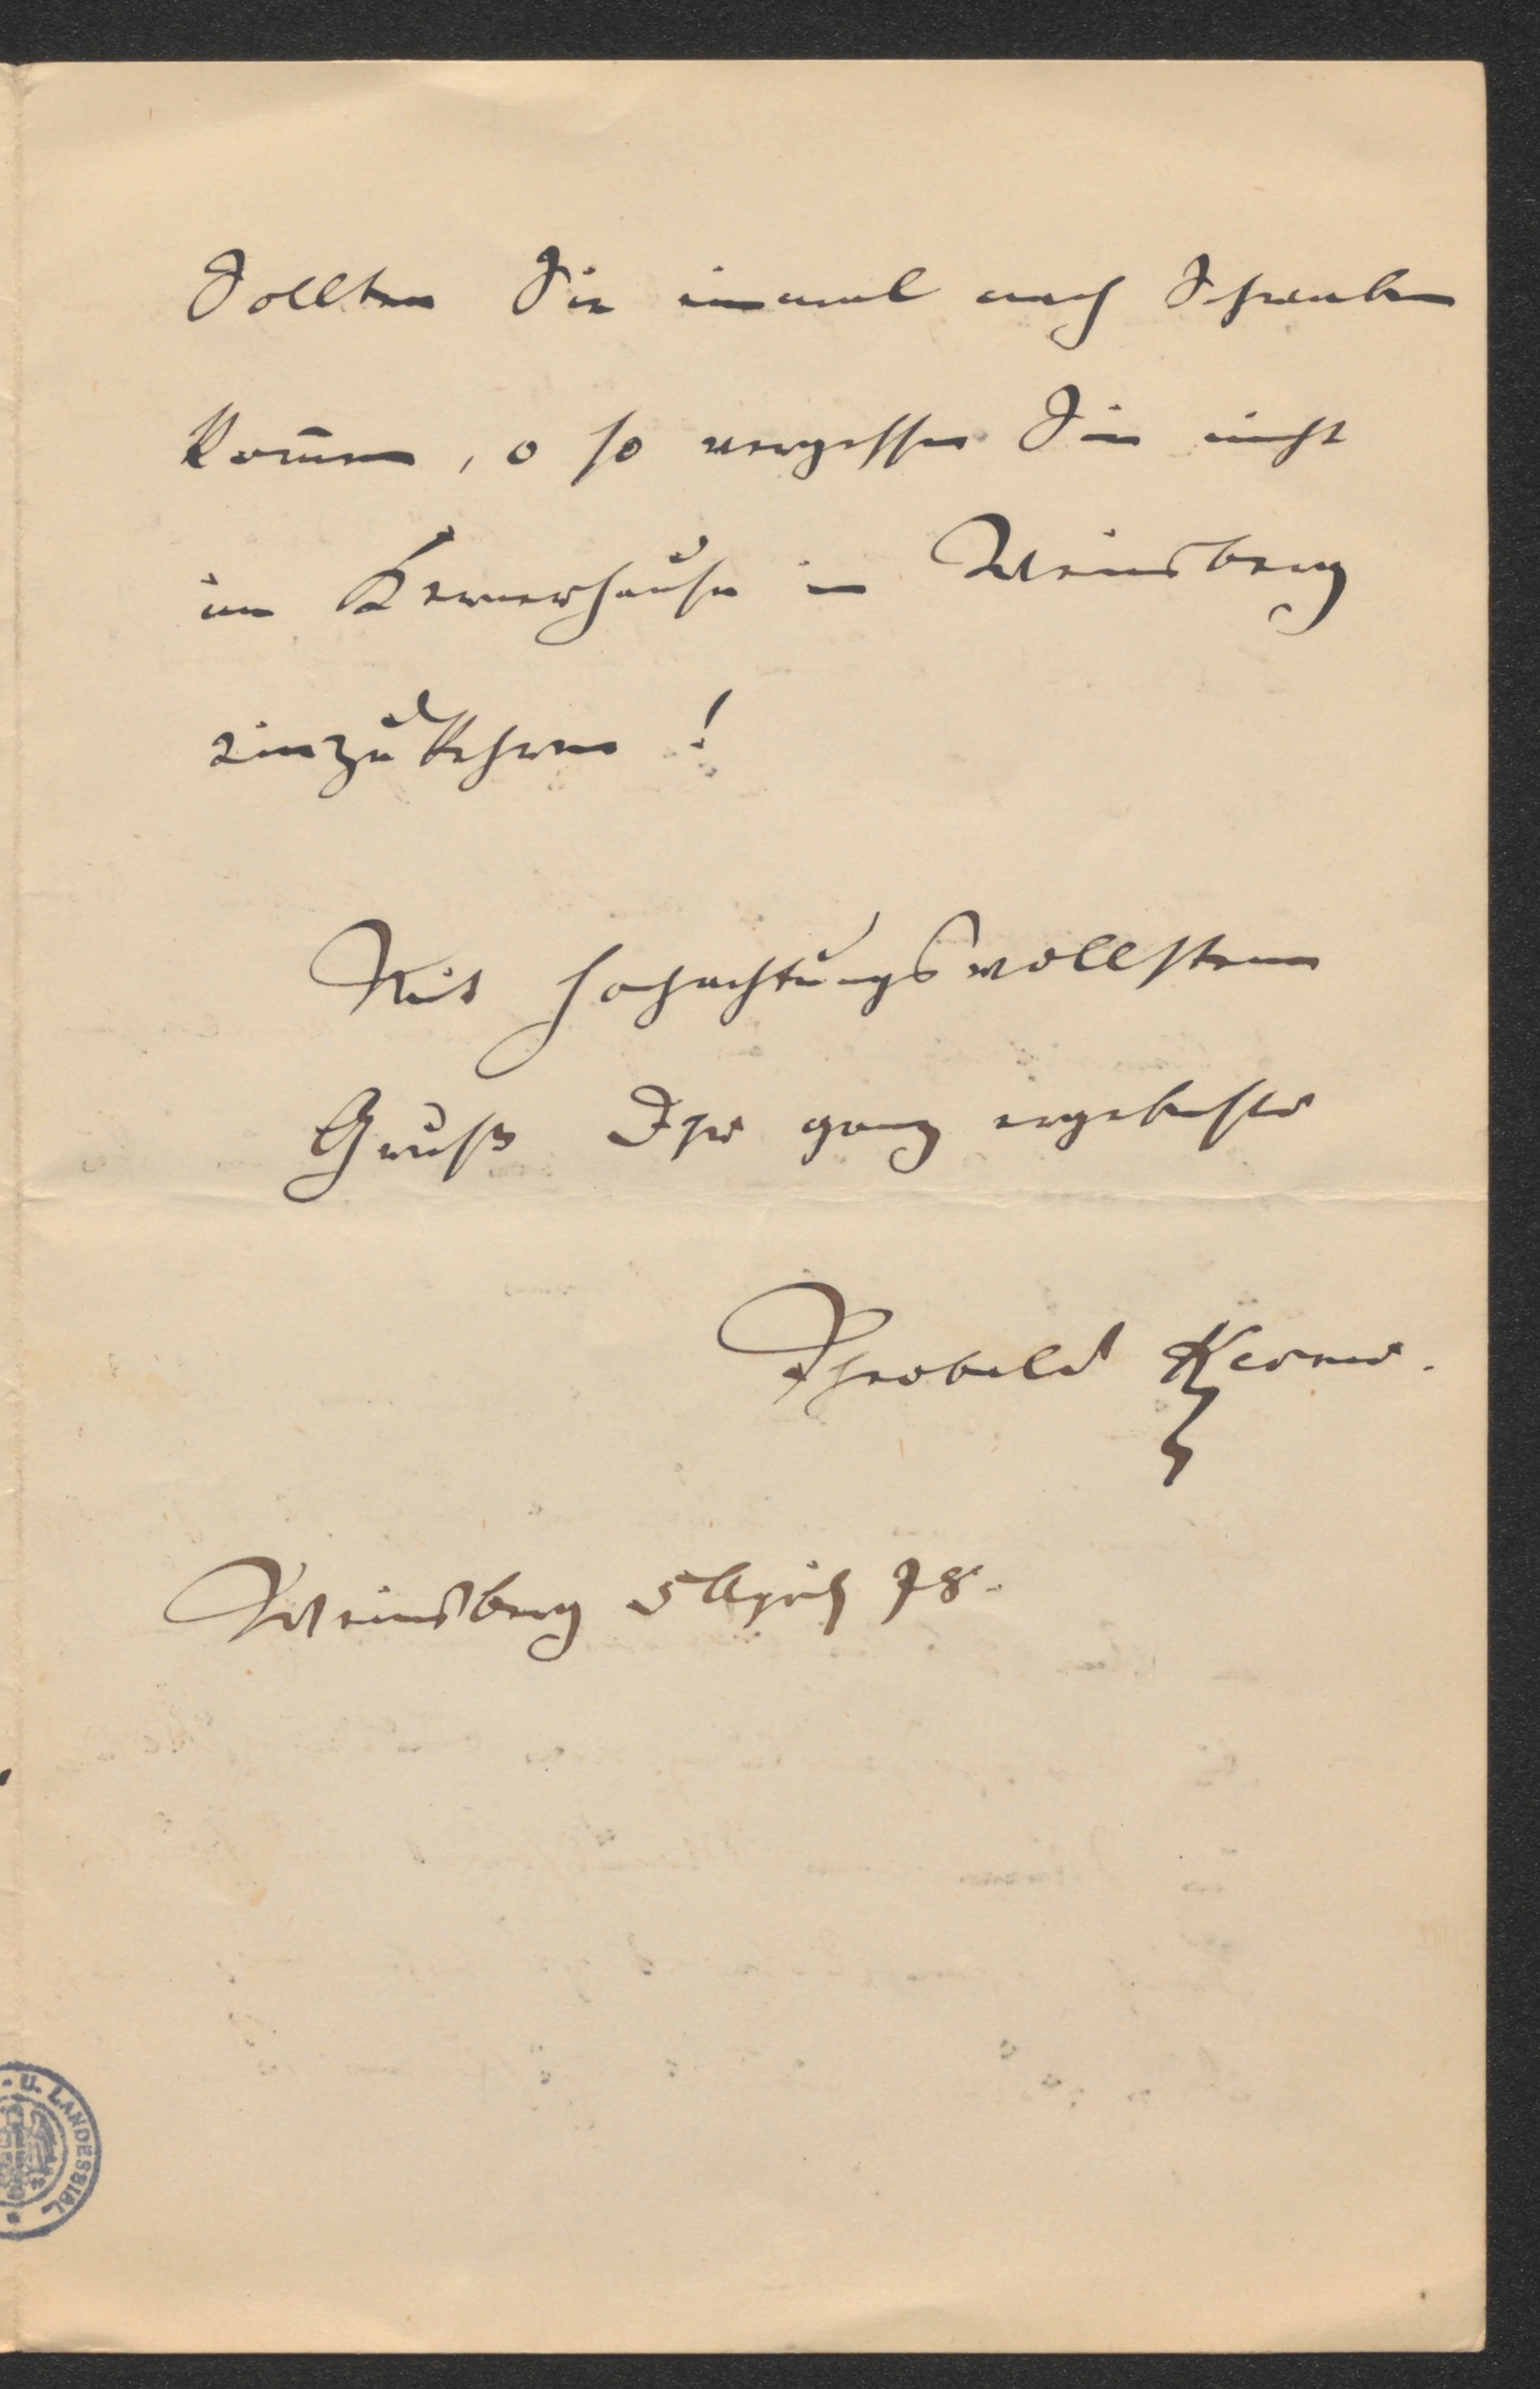 Sollten Sie einmal nach Schwaben
kom̄en, o so vergessen Sie nicht
im Kernerhause in Weinsberg
einzukehren!
Mit hochachtungsvollstem
Gruß Ihr ganz ergebenster
Theobald Kerner.
Weinsberg 5 April 78.
- U. LANDESBIBL.